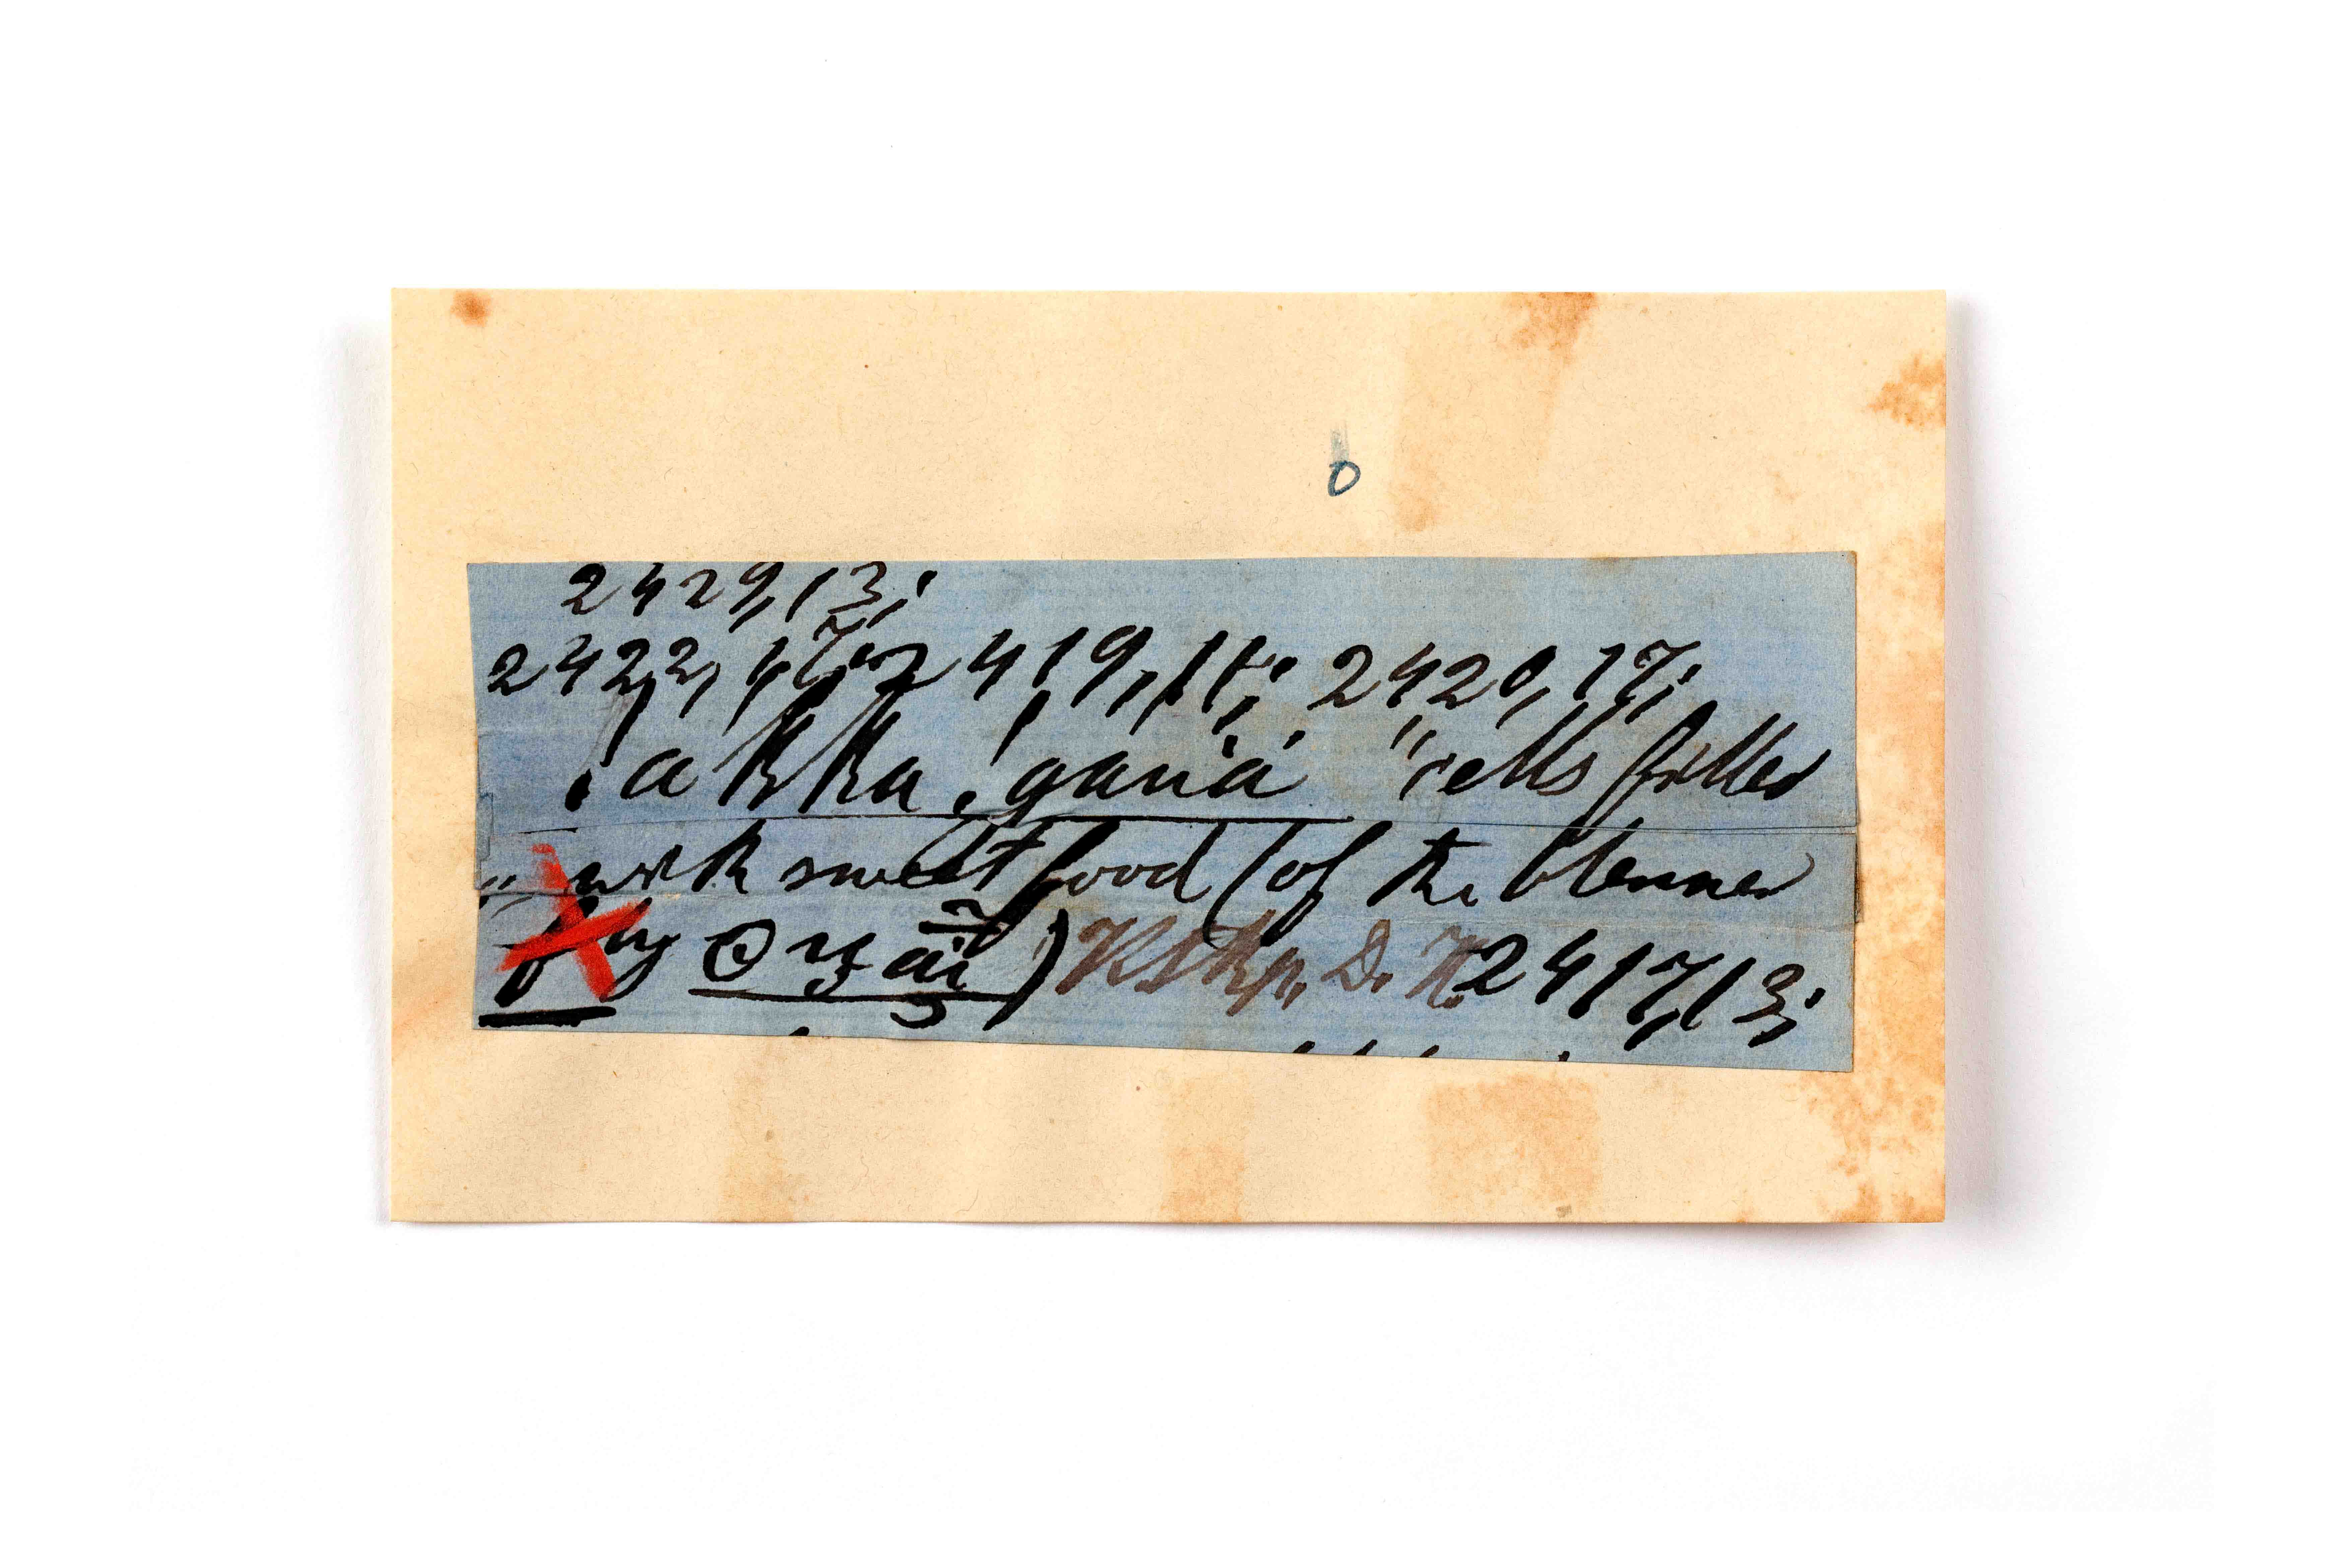 o
2429,13;
2422, 2419, 2420, 17;
!akka !gaua "cells filled
" with sweet food (of the blenner
fly ) Katkop. D. H. 2417,13;